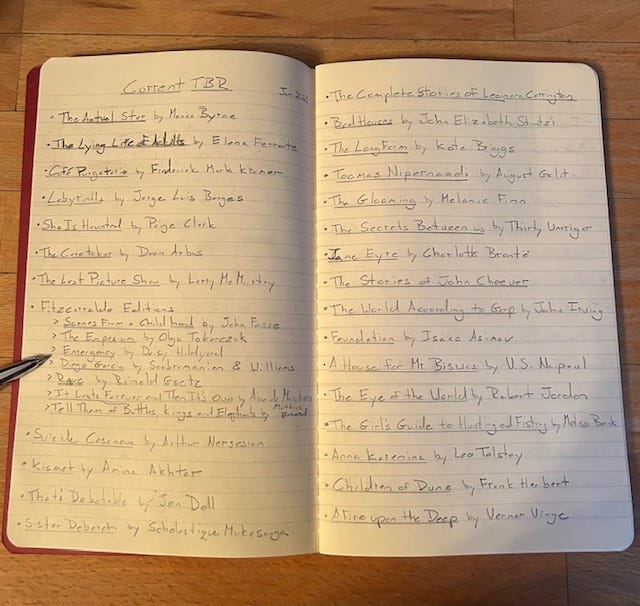 Current TBR
Jan
• The Actual Star by Monica Byrne
• The Lying Life of Adults by Elena Ferrante
• Café Purgatorio by Frederick Mark Kramer
• Labyrinths by Jorge Luis Borges
• She Is Haunted by Paige Clark
• The Caretaker by Doon Arbus
• The Last Picture Show by Larry McMurtry
• Fitzcarraldo Editions
> Scenes From a Childhood by John Fosse
> The Empusium by Olga Tokarczuk
> Emergency by Daisy Hildyard
> Diego Garcia by Soobramanien & Williams
> Rave by Rainald Goetz
> It Lasts Forever and Then It's Over by Anne de Marcken
> Tell Them of Battles, Kings and Elephants by Mathias Enard
• Suicide Casanova by Arthur Nersesian
• Kismet by Amina Akhtar
• That's Debatable by Jen Doll
• Sister Deborah by Scholastique Mukasonga
• The Complete Stories of Leonora Carrington
• Bad Houses by John Elizabeth Stintzi
• The Long Form by Kate Briggs
• Toomas Nipernaadi by August Gailit
• The Gloaming by Melanie Finn
• The Secrets Between us by Thrity Umrigar
• Jane Eyre by Charlotte Brontë
• The Stories of John Cheever
• The World According to Garp by John Irving
• Foundation by Isaac Asimov
• A House for Mr Biswas by V.S. Naipaul
• The Eye of the World by Robert Jordan
• The Girl's Guide to Hunting and Fishing by Melissa Bank
• Anna Karenina by Leo Tolstoy
• Children of Dune by Frank Herbert
• A Fire upon the Deep by Vernor Vinge